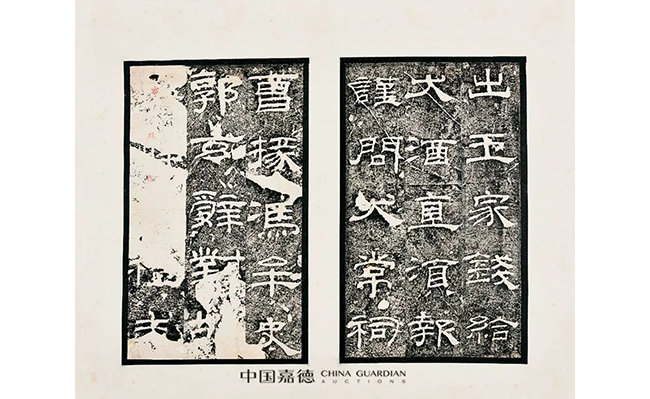 出王家錢給
犬酒直須報
謹問大常祠
曹掾馮牟史
郭玄辭對
中国嘉德 CHINA GUARDIAN
AUCTIONS